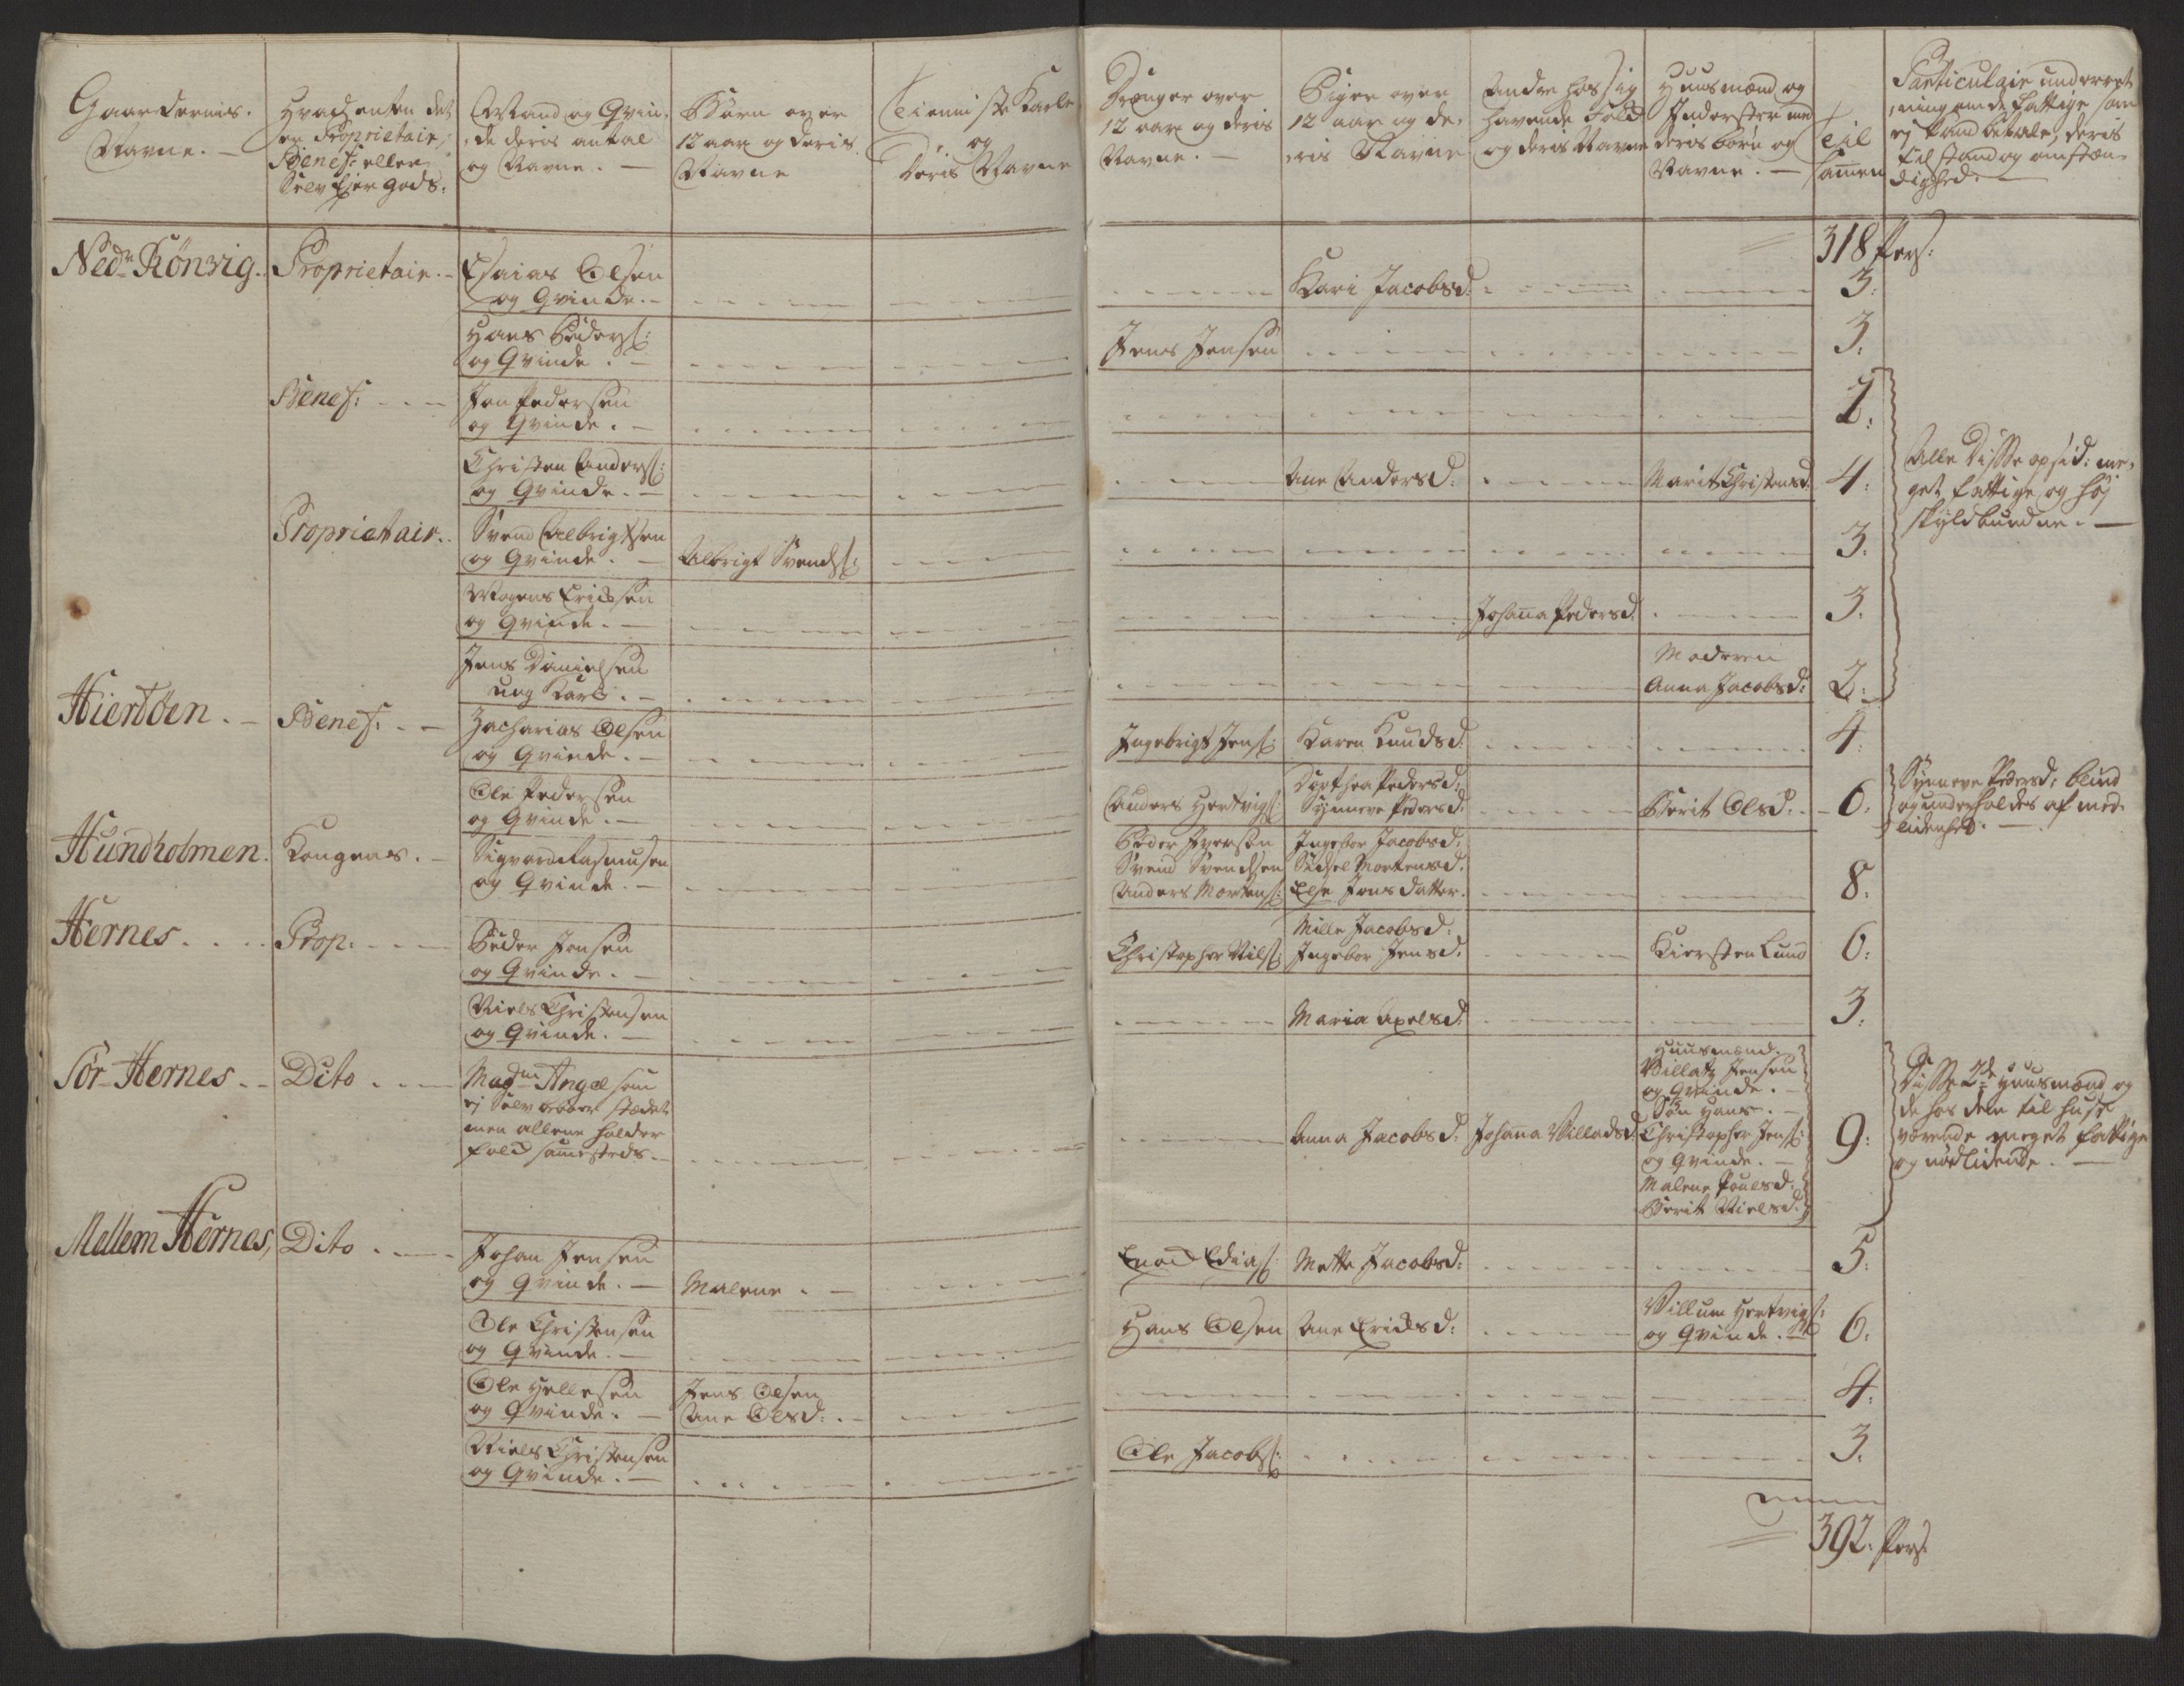 Gaardernis
Navne. —
Hvad enten det
er Proprietair,
Benef: eller
Selv Ejer gods:
Mand og Qvin,
de deris antal
og Navne. —
Børn over
12 aar og deris
Navne
Tienniste Karle
og
Deris Navne
Drenger over
12 aar og deris
Navne. —
Piger over
12 aar og de,
ris Navne
Andre hos sig
havende Folk
og deris Navne
Huusmænd og
Inderster med
deris børn og
Navne. —
Til
samen
Particulair underret
ning om de fattige som
ej kand betale, deris
tilstand og omstæn,
dighed. —
318 Pers:
Nedr Rönvig. Proprietair. Esaias Olsen
og Qvinde. — Kari Jacobsd: 3.
Hans Peders:
og Qvinde. — Jens Jensen 3.
Benef: Jon Pedersen
og Qvinde. — 2.
Christen Anders:
og Qvinde. — Ane Andersd: Marit Christensd: 4.
Alle Disse opsid: me,
get fattige og høj
skyldbundne. —
Proprietair. Svend Albrigtsen
og Qvinde. — Albrigt Svends: 3.
Mogens Ericksen
og Qvinde. — Johana Pedersd. 3.
Jens Danielsen
ung Karl. — Moderen
Anna Jacobsd: 2.
Hiertöen. — Benef: Zacharias Olsen
og Qvinde. — Ingebrigt Jens: Karen Knudsd: 4.
Ole Pedersen
og Qvinde. — Anders Hertvigs: Dorthea Pedersd:
Synneve Pedersd: Berit Olsd: 6.
Synneve Pedersd: blind
og underholdes af med,
lidenhed. —
Hundholmen. Kongens. Sigvard Rasmusen
og Qvinde. — Peder Iversen
Svend Svendsen
Anders Mortens: Ingebor Jacobsd:
Sidsel Mortensd.
Else Jons datter. 8.
Hernes. Prop: Peder Jonsen
og Qvinde. — Christopher Nils: Mille Jacobsd:
Ingebor Jensd. Kiersten Lund 6.
Niels Christensen
og Qvinde. — Maria Axelsd: 3.
Sör-Hernes. Dito. Madm Angel som
ej Selv beboer stædet
men allene holder
folk samesteds. — Anna Jacobsd: Johana Villadsd.
Huusmænd.
Villatz Jensen
og Qvinde. —
Søn Hans. —
Christopher Jens:
og Qvinde. —
Malene Pouelsd:
Berit Nielsd: 9.
Disse 2de Huusmænd og
de hos dem til huse
værende meget fattige
og nødlidende. —
Mellem Hernes, Dito. Johan Jensen
og Qvinde. — Malene. — Mette Jacobsd: 5.
Ole Christensen
og Qvinde. — Hans Olsen Ane Ericksd: Villum Hertvigs:
og Qvinde. — 6.
Ole Hellesen
og Qvinde. — Jens Olsen
Ane Olsd: 4.
Niels Christensen
og Qvinde. — Ole Jacobs: 3.
392. Pers: